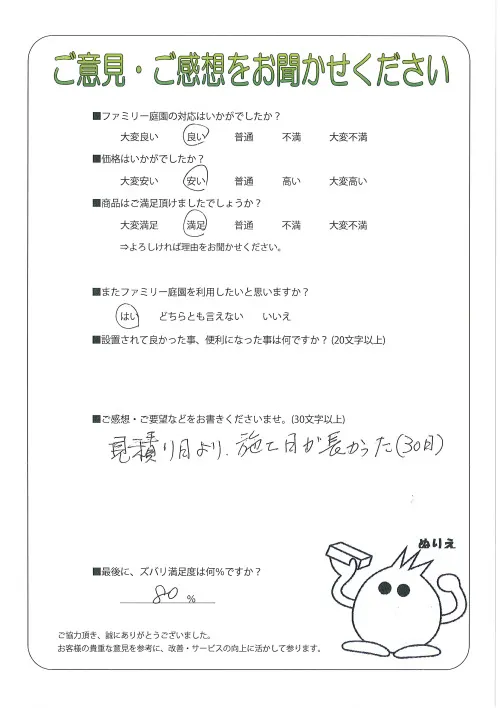 ご意見・ご感想をお聞かせください
■ファミリー庭園の対応はいかがでしたか？
大変良い 良い 普通 不満 大変不満
■価格はいかがでしたか？
大変安い 安い 普通 高い 大変高い
■商品はご満足頂けましたでしょうか？
大変満足 満足 普通 不満 大変不満
⇒よろしければ理由をお聞かせください。
■またファミリー庭園を利用したいと思いますか？
はい どちらとも言えない いいえ
■設置されて良かった事、便利になった事は何ですか？(20文字以上)
■ご感想・ご要望などをお書きくださいませ。(30文字以上)
見積り日より、施工日が長かった(30日)
ぬりえ
■最後に、ズバリ満足度は何％ですか？
80 ％
ご協力頂き、誠にありがとうございました。
お客様の貴重な意見を参考に、改善・サービスの向上に活かして参ります。